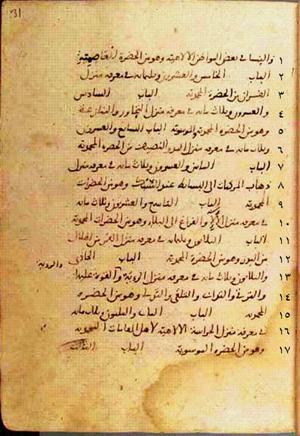 31
١ والنسا في بعض المواطن الالهية وهو من الحضرة العاصمية
٢ الباب الخامس والعشرون وثلثمائة في معرفة منزل
٣ القران من الحضرة المحمدية الباب السادس
٤ والعشرون وثلاث مائة في معرفة منزل التحاور والمنازعة
٥ وهو من الحضرة المحمدية الموسوية الباب السابع والعشرون
٦ وثلاث مائة في معرفة منزل المد والنصيف من الحضرة المحمدية
٧ الباب الثامن والعشرون وثلاث مائة في معرفة منزل
٨ ذهاب المركبات الى البسائط عند السبك وهو من الحضرات
٩ المحمدية الباب التاسع والعشرون وثلاث مائة
١٠ في معرفة منزل الالاء والفراغ الى البلاء وهو من الحضرات المحمدية
١١ الباب الثلاثون وثلثمائة في معرفة منزل القمر من الهلال
١٢ من البدر وهو من الحضرة المحمدية الباب الحادي
١٣ والثلاثون وثلاث مائة في معرفة منزل الرؤية والقوة عليها والرؤية
١٤ والترقي والتلقي والتدلي وهو من الحضرة
١٥ المحمدية الباب الثاني والثلاثون وثلاث مائة
١٦ في معرفة منزل الحراسة الالهية لاهل المقامات المحمدية
١٧ وهو من الحضرة الموسوية الباب الثالث